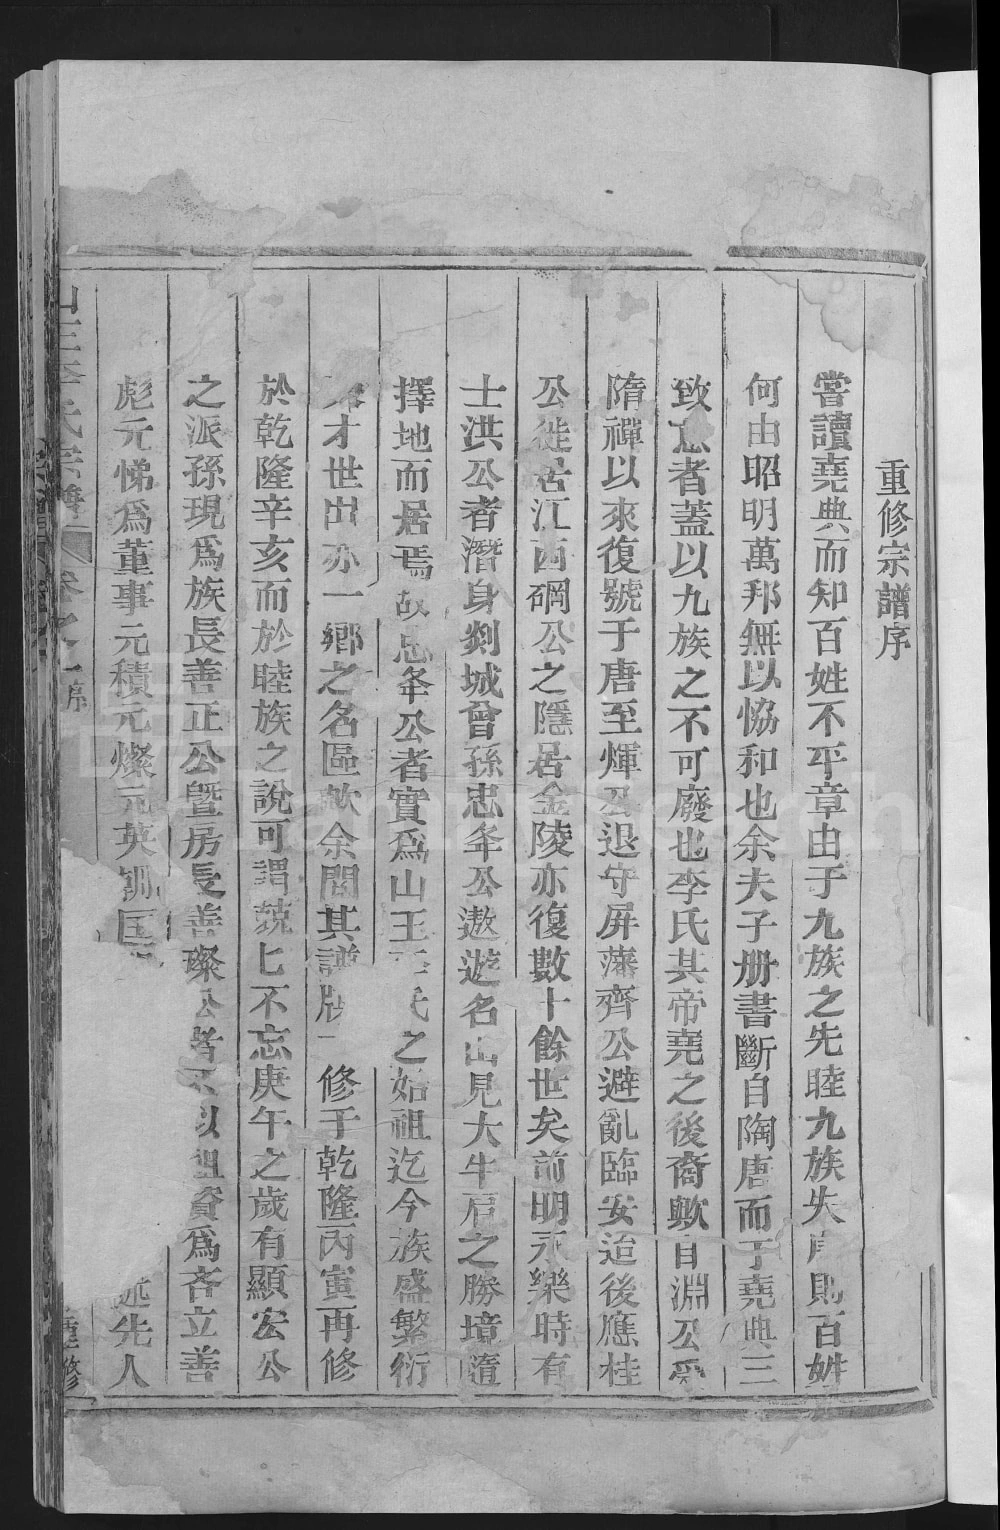 重修宗譜序
嘗讀堯典而知百姓不平章由于九族之先睦九族失序則百姓
何由昭明萬邦無以恊和也余夫子册書斷自陶唐而于堯典三
致意者蓋以九族之不可廢也李氏其帝堯之後裔歟自淵公受
隋禪以來復號于唐至煇公退守屏藩齊公避亂臨安迨後應桂
公徙居江西碙公之隱居金陵亦復數十餘世矣前明永樂時有
士洪公者潛身剡城曾孫忠夆公遨遊名山見大牛石之勝境隨
擇地而居焉故忠夆公者實爲山王李氏之始祖迄今族盛繁衍
才世出亦一鄉之名區歟余閱其譜牒修于乾隆丙寅再修
於乾隆辛亥而於睦族之說可謂兢匕不忘庚午之歲有顯宏公
之派孫現爲族長善正公曁房長善璨公者不以組資爲吝立善
彪元悌爲董事元積元燦元英
述先人
山王李氏宗譜
卷之一
序
重修